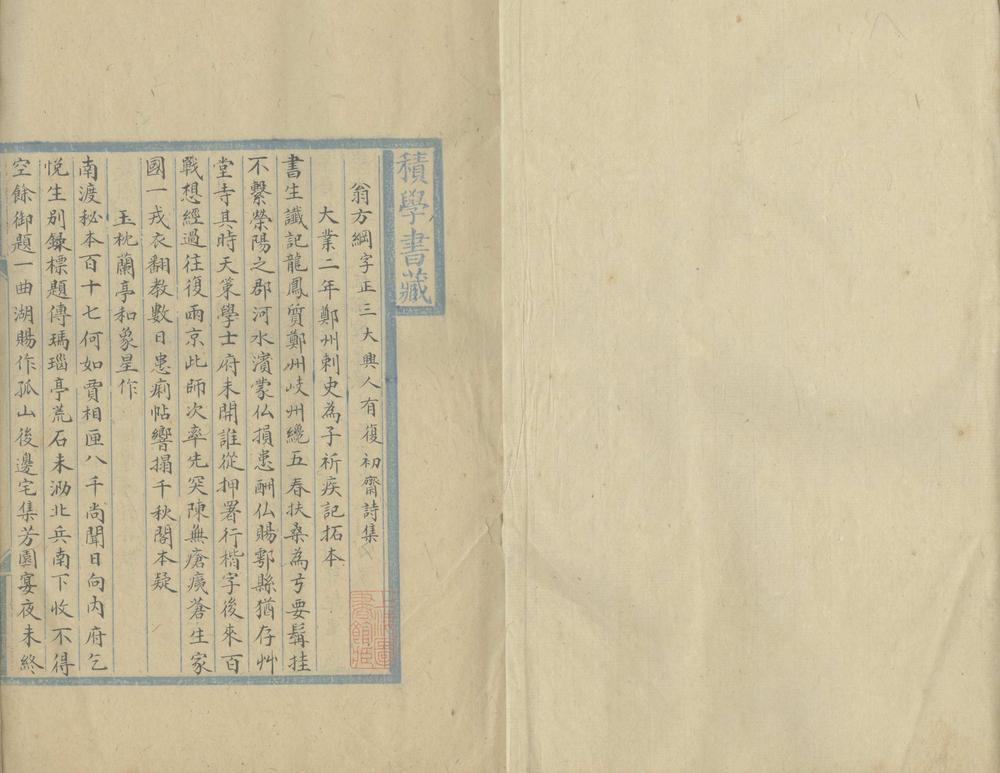 積學書藏
翁方綱字正三大興人有復初齋詩集
大業二年鄭州刺史為子祈疾記拓本
書生讖記龍鳳質鄭州岐州纔五春扶桑為弓要髯挂
不繫滎陽之郡河水濱蒙仏損患酬仏賜鄠縣猶存艸
堂寺其時天策學士府未開誰從押署行楷字後來百
戰想經過往復兩京此師次率先突陳無瘡痍蒼生家
國一戎衣翻教數日患痢帖響搨千秋閣本疑
玉枕蘭亭和象星作
南渡秘本百十七何如賈相匣八千尚聞日向內府乞
悅生別錄標題傳瑪瑙亭荒石未泐北兵南下收不得
空餘御題一曲湖賜作孤山後邊宅集芳園宴夜未終
上海圖
書館藏